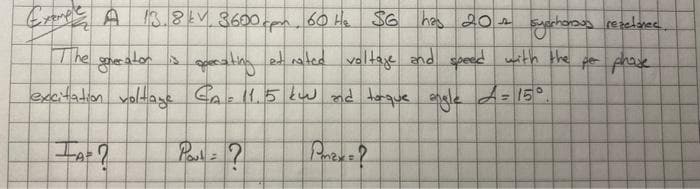 Example A 13.8 kV, 3600 rpm, 60 Hz SG has 20 Ω synchronous reactance.
The generator is operating at rated voltage and speed with the per phase
excitation voltage EA = 11.5 kW and torque angle δ = 15°.
IA = ? Pout = ? Pmax = ?